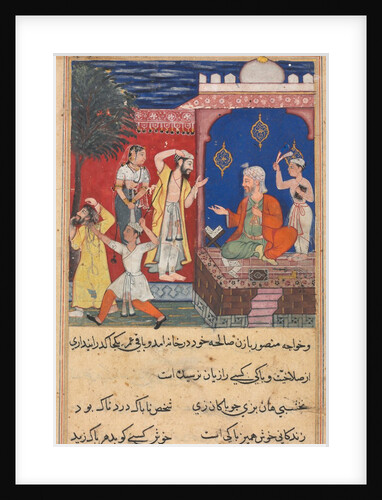 و خواجه منصور با زن صالحه خود در خانه امد و باقی عمر یکجا کذرانیدی
از صلاحیت و پاکی کسی را زیان نرسیدست
نخشبی هان بزی جو پاکان زی شخص ناپاک دردناک بود
زندکانی خوش همین پاکی است خوش کسی کو بدهر پاک زید